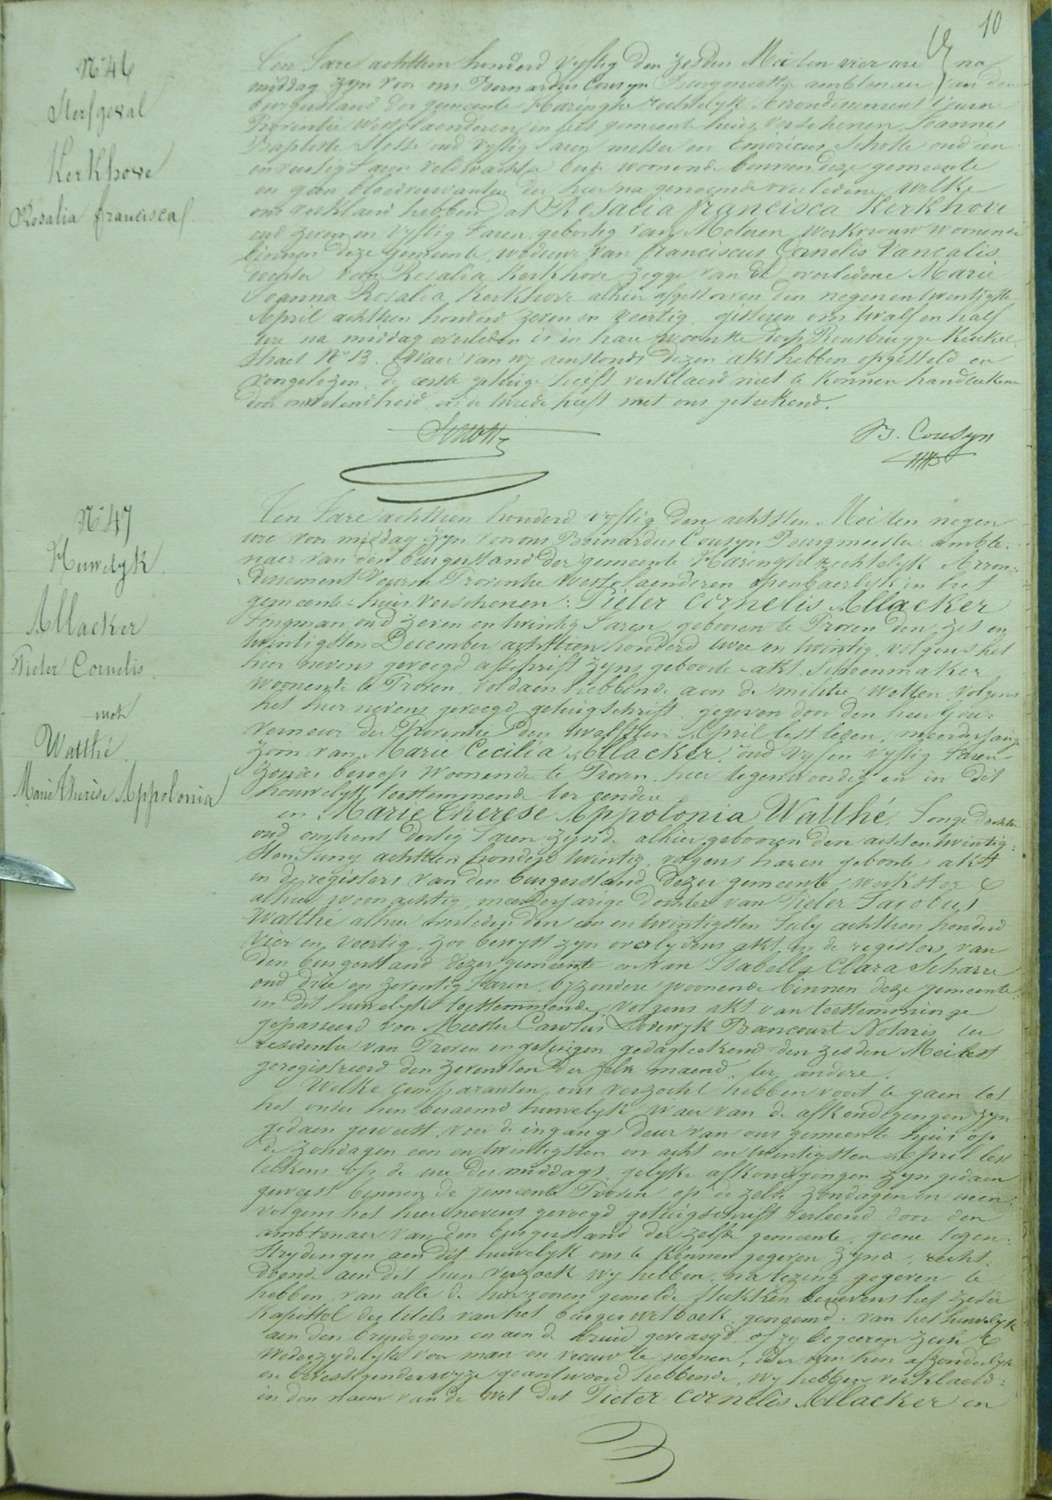 10
N° 46
Sterfgeval
Kerkhove
Rosalia francisca
Ten Jare achttien honderd vyftig den zesden Mei ten vier ure na
middag zyn voor ons Bernardus Cousyn Burgmeester ambtenaer van den
burgerstand der gemeente Haringhe rechtelyk Arrondissement Veurne
Provintie Westvlaenderen in het gemeente huis verschenen Joannes
Baptiste oud vyftig Jaren metser en oud een
en veertig Jaren veldwachter beide woonende binnen deze gemeente
en geen bloedverwanten der hier na genoemde overledene, welke
ons verklaerd hebben dat Rosalia francisca Kerkhove
oud zeven en vyftig Jaren, geboortig van Meteren werkvrouw woonende
binnen deze gemeente, weduwe van franciscus Cornelis
dochter van Rosalia Kerkhove zegge van de overledene Marie
Joanna Rosalia Kerkhove alhier afgestorven den negenentwintigste
April achttien honderd zeven en veertig, gisteren om twalf en half
ure na middag overleden is in hare woonste dorp Rousbrugge
straet N° 13. Waer van wy aenstonds dezen akt hebben opgesteld en
voorgelezen, de eerste getuige heeft verklaerd niet te konnen handteekenen
door onwetendheid en de tweede heeft met ons geteekend.
B. Cousyn
N° 47
Huwelyk
Allacker
Pieter Cornelis
met
Watthé
Marie thérèse Appolonia
Ten Jare achttien honderd vyftig den achtsten Mei ten negen
ure voor middag zyn voor ons Bernardus Cousyn Burgmeester ambte-
naer van den burgerstand der gemeente Haringhe rechtelyk Arron-
dissement Veurne Provintie Westvlaenderen openbaerlyk in het
gemeente huis verschenen: Pieter Cornelis Allacker
Jongman oud zeven en twintig Jaren, geboren te Proven den zes en
twintigsten December achttien honderd twee en twintig, volgens het
hier nevens gevoegd afschrift zyns geboorte akt, schoenmaker
woonende te Proven, voldaen hebbende aen de militie Wetten volgens
het hier nevens gevoegd getuigschrift, gegeven door den heer Gou-
verneur der Provintie den twalfsten April lest leden, meerderjarige
zoon van Marie Cecilia Allacker, oud vyf en vyftig Jaren
zonder beroep woonende te Proven, hier tegenwoordig en in dit
houwelyk toestemmende ter eendere
en Marie therese Appolonia Watthé, Jonge dochter
oud omtrent dertig Jaren zynde alhier geboren den acht en twintig-
sten Juny achttien honderd twintig, volgens haren geboorte akt
in de registers van den burgerstand dezer gemeente, werkster
alhier woonachtig, meerderjarige dochter van Pieter Jacobus
Watthé alhier overleden den een en twintigsten July achttien honderd
vier en veertig, zoo bewyst zyn overlydens akt in de registers van
den burgerstand dezer gemeente en van Isabella Clara Scharre
oud drie en zeventig Jaren, byzondere woonende binnen deze gemeente
in dit huwelyk toestemmende, volgens akt van toestemminge
gepasseerd voor Meester Carolus Lodewyk Brancourt Notaris ter
residentie van Proven en getuigen gedagteekend den zesden Mei lest
geregistreerd den zevensten der zelve maend, ter andere.
Welke comparanten ons verzocht hebben voort te gaen tot
het onder hun beraemd huwelyk waer van de afkondigingen zyn
gedaen geweest voor de ingang deur van ons gemeente huis op
de zondagen een en twintigsten en acht en twintigsten April lest
telkens op de ure des middags, gelyke afkondigingen zyn gedaen
geweest binnen de gemeente Proven op de zelve zondagen en uren
volgens het hier nevens gevoegd getuigschrift verleend door den
ambtenaer van den burgerstand der zelve gemeente, geene tegen-
strydingen aen dit huwelyk ons te kennen gegeven zynde, recht
doende aen dit hun verzoek wy hebben na lezing gegeven te
hebben van alle de hier voren gemelde stukken benevens het zesde
Kapittel des titels van het burger wetboek, genoemd: van het huwelyk
aen den bruidegom en aen de bruid gevraegd of zy begeeren zich
wederzydelyk voor man en vrouw te nemen, ider van hen afzonderlyk
en bevestigender wyze geantwoord hebbende, wy hebben verklaerd
in den naem van de wet dat Pieter Cornelis Allacker en